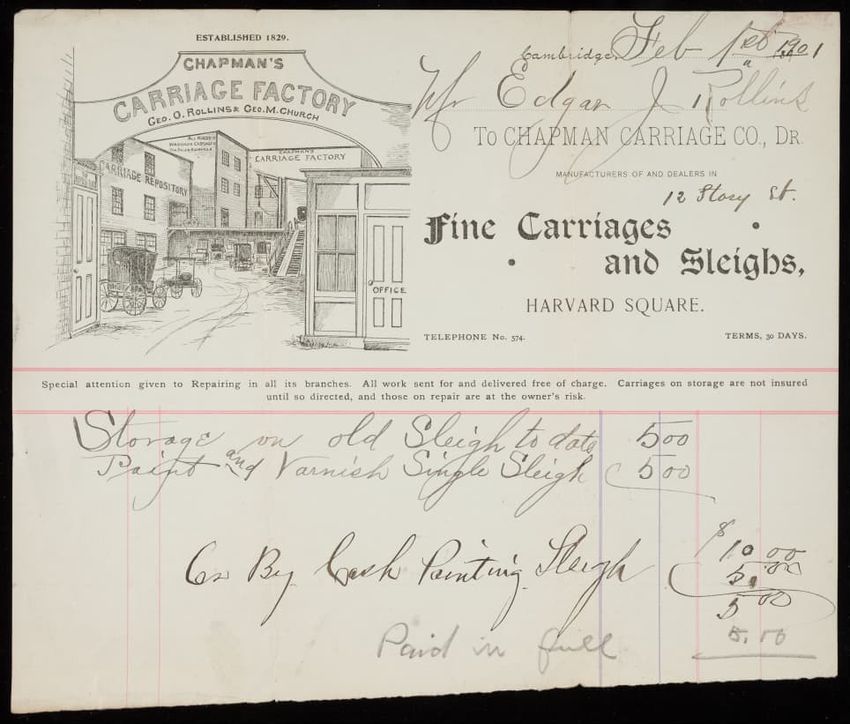 ESTABLISHED 1829.
CHAPMAN'S
CARRIAGE FACTORY
GEO. O. ROLLINS & GEO. M. CHURCH
CHAPMAN'S
CARRIAGE FACTORY
CARRIAGE REPOSITORY
OFFICE
Cambridge, Feb 1st 1901
Mr Edgar J Rollins
TO CHAPMAN CARRIAGE CO., DR.
MANUFACTURERS OF AND DEALERS IN
12 Story St.
Fine Carriages
and Sleighs,
HARVARD SQUARE.
TELEPHONE No. 574. TERMS, 30 DAYS.
Special attention given to Repairing in all its branches. All work sent for and delivered free of charge. Carriages on storage are not insured
until so directed, and those on repair are at the owner's risk.
Storage on old Sleigh to date 5 00
Paint and Varnish Single Sleigh 5 00
$10.00
Cr By Cash Painting Sleigh 5.00
5 00
Paid in full 5.00